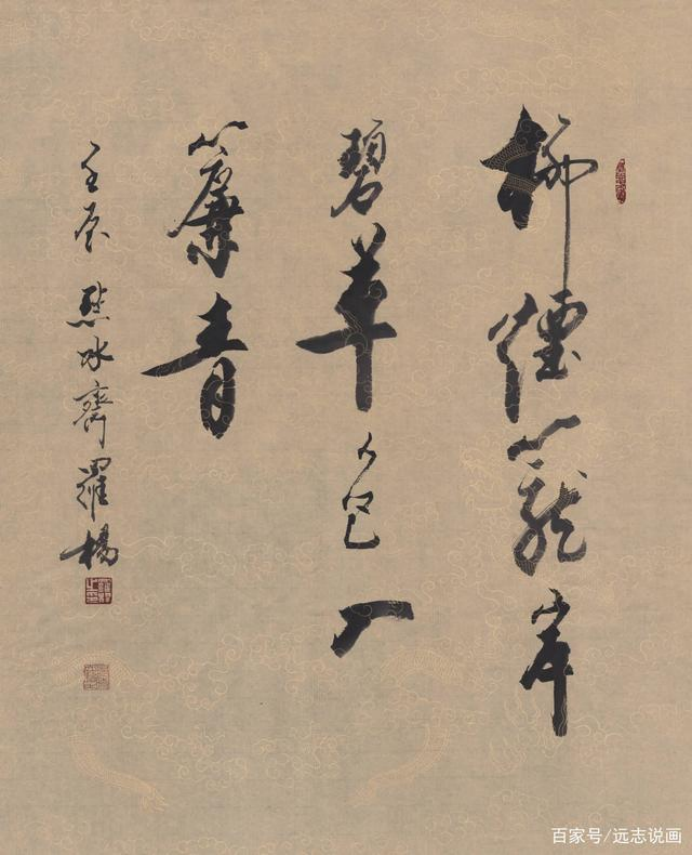 柳煙籠岸
碧草色入
簾青
壬辰 齋羅楊
百家号/远志说画